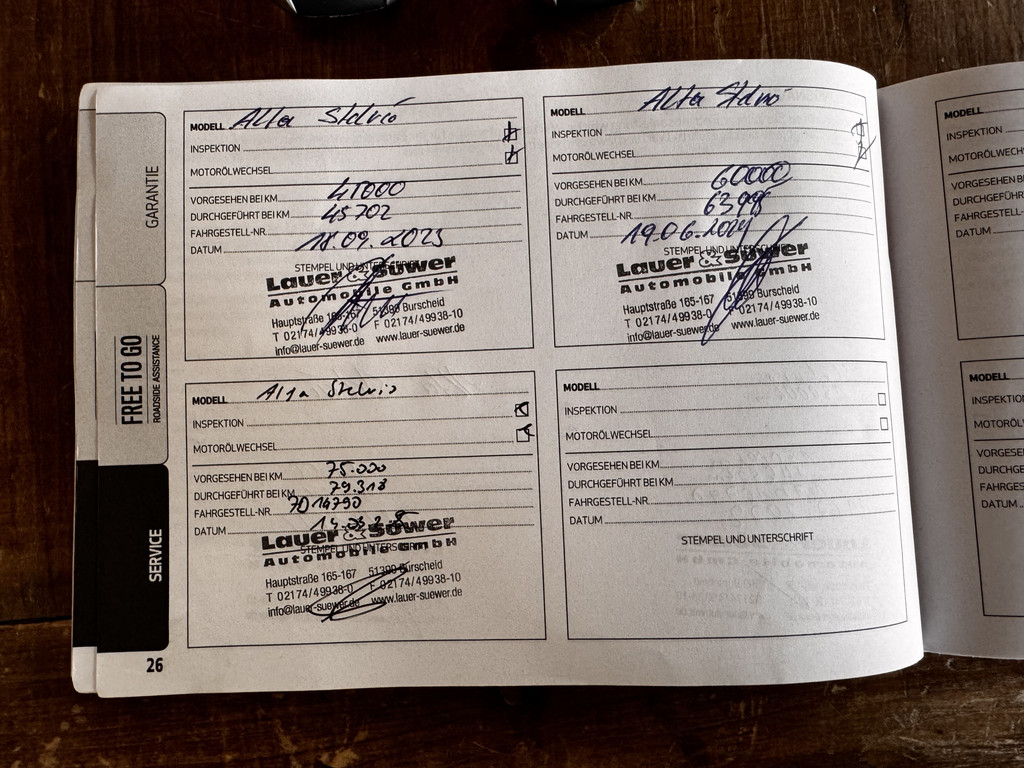 GARANTIE
FREE TO GO
ROADSIDE ASSISTANCE
SERVICE
MODELL Alfa Stelvio
INSPEKTION
MOTORÖLWECHSEL
VORGESEHEN BEI KM 41000
DURCHGEFÜHRT BEI KM 45702
FAHRGESTELL-NR.
DATUM 18.09.2023
STEMPEL UND UNTERSCHRIFT
Lauer & Süwer
Automobile GmbH
Hauptstraße 165-167 51399 Burscheid
T 02174/49938-0 F 02174/49938-10
info@lauer-suewer.de www.lauer-suewer.de
MODELL Alfa Stelvio
INSPEKTION
MOTORÖLWECHSEL
VORGESEHEN BEI KM 60000
DURCHGEFÜHRT BEI KM
FAHRGESTELL-NR.
DATUM 19.06.2024
STEMPEL UND UNTERSCHRIFT
Lauer & Süwer
Automobile GmbH
Hauptstraße 165-167 51399 Burscheid
T 02174/49938-0 F 02174/49938-10
info@lauer-suewer.de www.lauer-suewer.de
MODELL Alfa Stelvio
INSPEKTION
MOTORÖLWECHSEL
VORGESEHEN BEI KM 75.000
DURCHGEFÜHRT BEI KM 79.318
FAHRGESTELL-NR. 7D14790
DATUM
Lauer & Süwer
STEMPEL UND UNTERSCHRIFT
Automobile GmbH
Hauptstraße 165-167 51399 Burscheid
T 02174/49938-0 F 02174/49938-10
info@lauer-suewer.de www.lauer-suewer.de
MODELL
INSPEKTION
MOTORÖLWECHSEL
VORGESEHEN BEI KM
DURCHGEFÜHRT BEI KM
FAHRGESTELL-NR.
DATUM
STEMPEL UND UNTERSCHRIFT
26
MODELL
INSPEKTION
MOTORÖLWECH
VORGESEHEN BE
DURCHGEFÜHRT
FAHRGESTELL-N
DATUM
MODELL
INSPEKT
MOTORÖL
VORGESE
DURCHGE
FAHRGES
DATUM